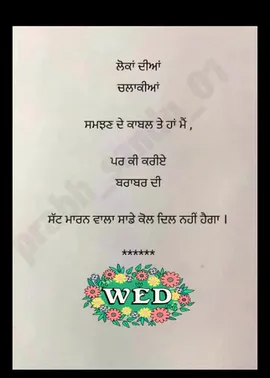 ਲੋਕਾਂ ਦੀਆਂ
ਚਲਾਕੀਆਂ
ਸਮਝਣ ਦੇ ਕਾਬਲ ਤੇ ਹਾਂ ਮੈਂ ,
ਪਰ ਕੀ ਕਰੀਏ
ਬਰਾਬਰ ਦੀ
ਸੱਟ ਮਾਰਨ ਵਾਲਾ ਸਾਡੇ ਕੋਲ ਦਿਲ ਨਹੀਂ ਹੈਗਾ ।
******
WED